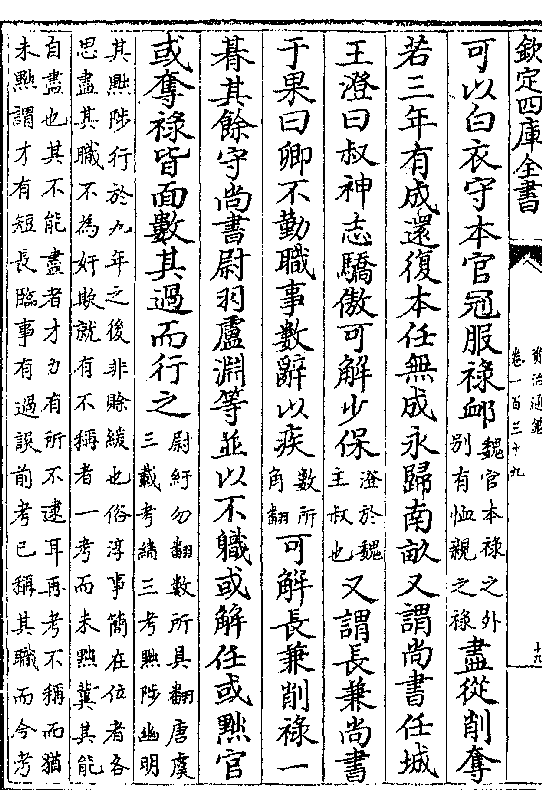 欽定四庫全書
資治通鑑
卷一百三十九
十九
可以白衣守本官冠服祿卹魏官本祿之外別有恤親之祿盡從削奪
若三年有成還復本任無成永歸南畝又謂尚書任城
王澄曰叔神志驕傲可解少保澄於魏主叔也又謂長兼尚書
于果曰卿不勤職事數辭以疾數所角翻可解長兼削祿一
朞其餘守尚書尉羽盧淵等並以不職或解任或黜官
或奪祿皆面數其過而行之尉紆勿翻數所具翻唐虞三載考績三考黜陟幽明
其黜陟行於九年之後非賒緩也俗淳事簡在位者各
思盡其職不為奸欺就有不稱者一考而未黜冀其能
自盡也其不能盡者才力有所不逮耳再考不稱而猶
未黜謂才有短長臨事有過誤前考已稱其職而今考